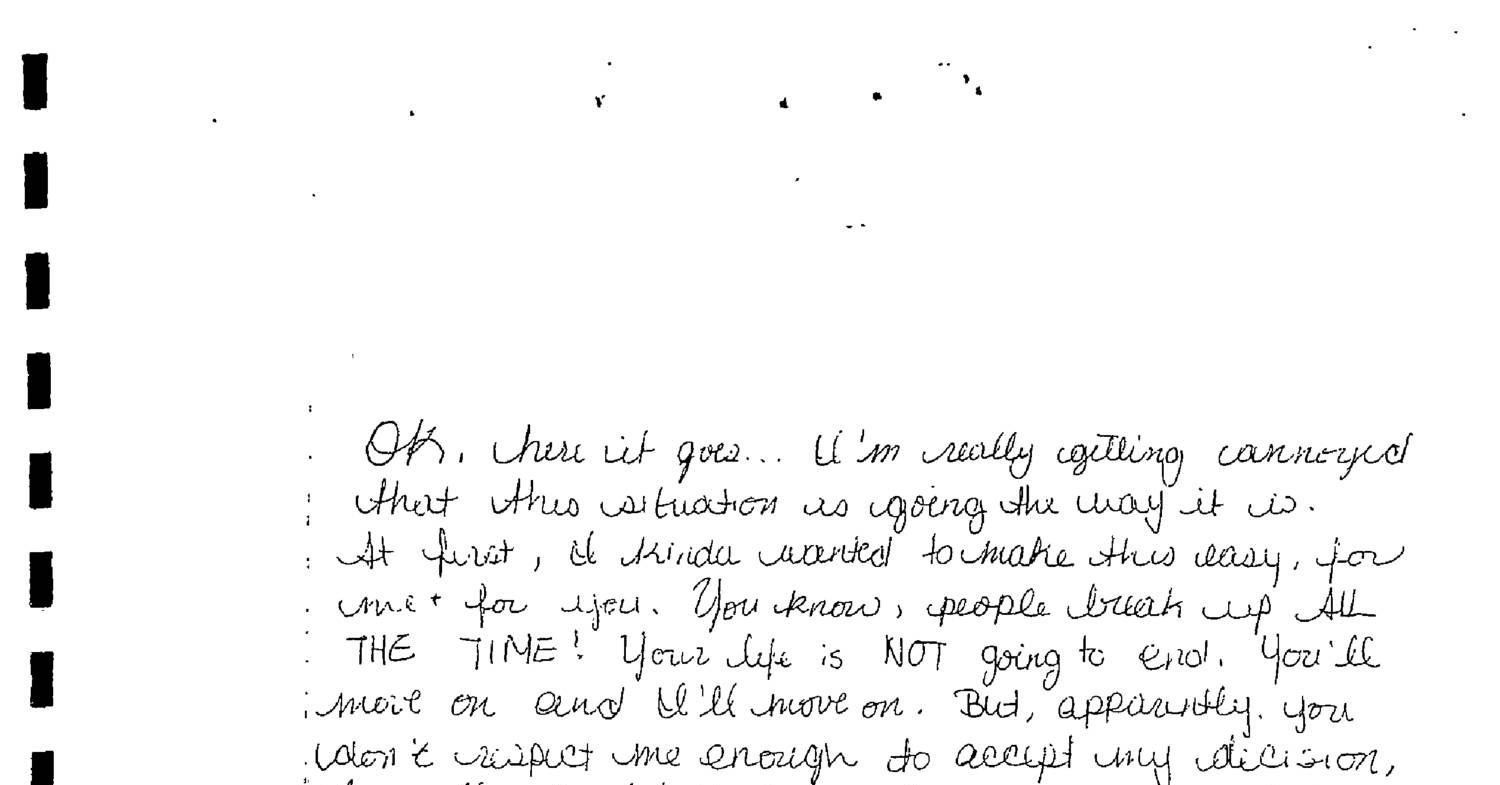 OK, here it goes... I'm really getting annoyed
that this situation is going the way it is.
At first, I kinda wanted to make this easy, for
me + for you. You know, people break up ALL
THE TIME! Your life is NOT going to end. You'll
move on and I'll move on. But, apparently, you
don't respect me enough to accept my decision,